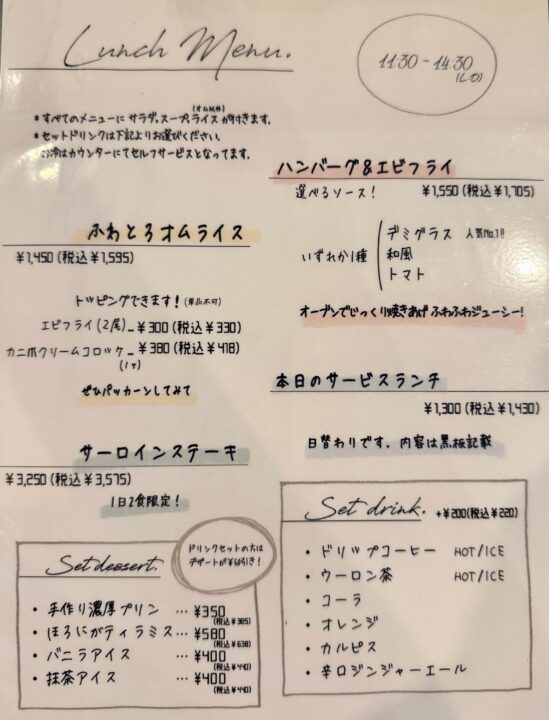 Lunch Menu.
11:30 ~ 14:30
(L.O)
*すべてのメニューに サラダ。スープ。ライス が付きます。
(オム以外)
*セットドリンクは下記よりお選びください。
お冷はカウンターにてセルフサービスとなってます。
ふわとろオムライス
¥1,450 (税込¥1,595)
トッピングできます! (単品不可)
エビフライ (2尾) _ ¥300 (税込¥330)
カニ爪クリームコロッケ _ ¥380 (税込¥418)
(1ヶ)
ぜひパッカーンしてみて
サーロインステーキ
¥3,250 (税込¥3,575)
1日2食限定!
ハンバーグ&エビフライ
選べるソース! ¥1,550 (税込¥1,705)
いずれか1種
デミグラス 人気No.1!!
和風
トマト
オーブンでじっくり焼きあげ ふわふわジューシー!
本日のサービスランチ
¥1,300 (税込¥1,430)
日替わりです。内容は黒板記載
Set dessert.
ドリンクセットの方は
デザートが引き!
・手作り濃厚プリン …¥350
(税込¥385)
・ほろにがティラミス…¥580
(税込¥638)
・バニラアイス …¥400
(税込¥440)
・抹茶アイス …¥400
(税込¥440)
Set drink. +¥200(税込¥220)
・ドリップコーヒー HOT/ICE
・ウーロン茶 HOT/ICE
・コーラ
・オレンジ
・カルピス
・辛口ジンジャーエール